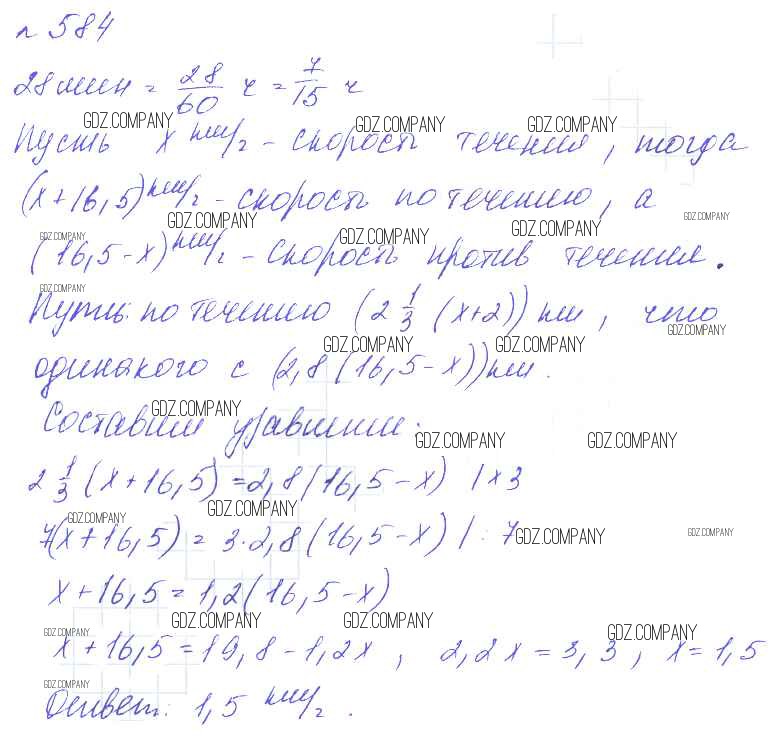 № 584
28 мин = 28/60 ч = 7/15 ч
GDZ.COMPANY GDZ.COMPANY GDZ.COMPANY
Пусть x км/ч - скорость течения, тогда
(x+16,5) км/ч - скорость по течению, а
GDZ.COMPANY GDZ.COMPANY
GDZ.COMPANY GDZ.COMPANY GDZ.COMPANY
(16,5-x) км/ч - скорость против течения.
GDZ.COMPANY
Путь по течению (2 1/3 (x+2)) км, что
GDZ.COMPANY
GDZ.COMPANY GDZ.COMPANY
одинакого с (2,8(16,5-x)) км.
GDZ.COMPANY
Составим уравнение:
GDZ.COMPANY GDZ.COMPANY
2 1/3 (x+16,5) = 2,8(16,5-x) | x3
GDZ.COMPANY GDZ.COMPANY
7(x+16,5) = 3·2,8(16,5-x) | : 7
GDZ.COMPANY GDZ.COMPANY
x+16,5=1,2(16,5-x)
GDZ.COMPANY GDZ.COMPANY
GDZ.COMPANY GDZ.COMPANY
x+16,5=19,8-1,2x, 2,2x=3,3, x=1,5
GDZ.COMPANY
Ответ: 1,5 км/ч.